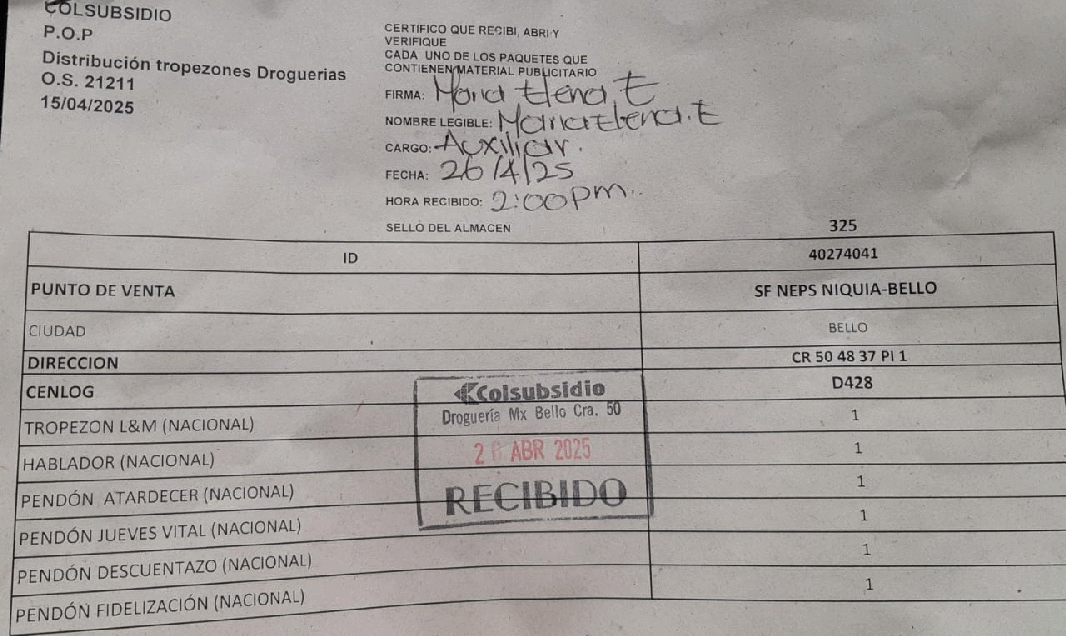 COLSUBSIDIO
P.O.P
Distribución tropezones Droguerias
O.S. 21211
15/04/2025
CERTIFICO QUE RECIBI, ABRI Y
VERIFIQUE
CADA UNO DE LOS PAQUETES QUE
CONTIENEN MATERIAL PUBLICITARIO
FIRMA: Maria Elena. E
NOMBRE LEGIBLE: Maria Elena. E
CARGO: Auxiliar.
FECHA: 26/4/25
HORA RECIBIDO: 2:00pm.
SELLO DEL ALMACEN 325
ID 40274041
PUNTO DE VENTA SF NEPS NIQUIA-BELLO
CIUDAD BELLO
DIRECCION CR 50 48 37 PI 1
CENLOG D428
TROPEZON L&M (NACIONAL) 1
HABLADOR (NACIONAL) 1
PENDÓN ATARDECER (NACIONAL) 1
PENDÓN JUEVES VITAL (NACIONAL) 1
PENDÓN DESCUENTAZO (NACIONAL) 1
PENDÓN FIDELIZACIÓN (NACIONAL) 1
Colsubsidio
Droguería Mx Bello Cra. 50
26 ABR 2025
RECIBIDO